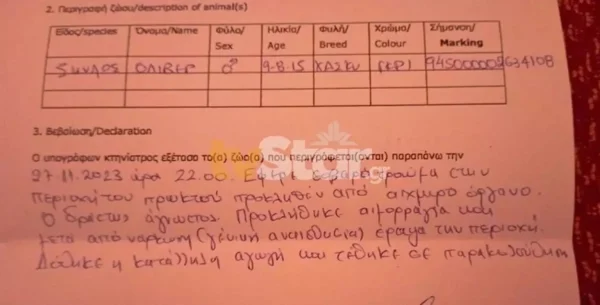 2. Περιγραφή ζώου/description of animal(s)
Είδος/species Όνομα/Name Φύλο/Sex Ηλικία/Age Φυλή/Breed Χρώμα/Colour Σήμανση/Marking
ΣΚΥΛΟΣ ΟΛΙΒΕΡ ♂ 9-8-15 ΧΑΣΚΥ ΓΚΡΙ
3. Βεβαίωση/Declaration
Star.gr
Ο υπογράφων κτηνίατρος εξέτασα το(α) ζώο(α) που περιγράφεται(ονται) παραπάνω την
27.11.2023 ώρα 22.00. Έφερε τραύμα στην
περιοχή του πρωκτού προκληθέν από αιχμηρό όργανο.
Ο δράστης άγνωστος. Προκλήθηκε αιμορραγία και
μετά από νάρκωση (γενική αναισθησία) έραψα την περιοχή.
Δόθηκε η κατάλληλη αγωγή και τέθηκε σε παρακολούθηση